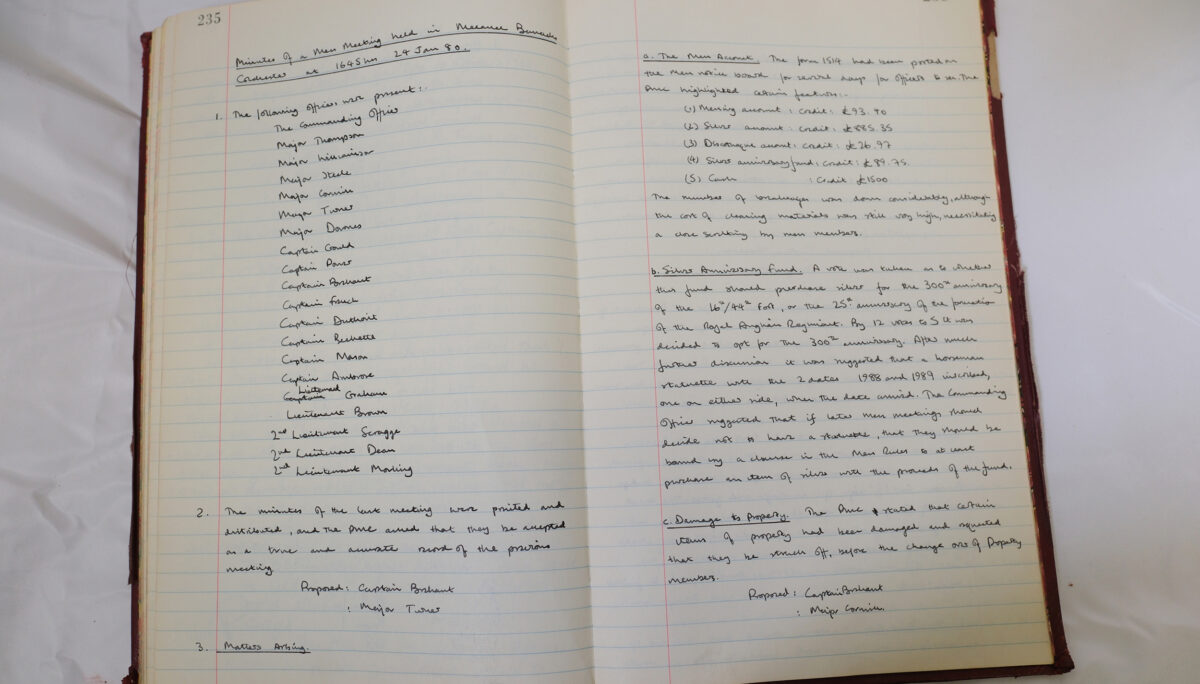 235
Minutes of a Mess Meeting held in Meeanee Barracks
Colchester at 1645 hrs 24 Jan 80.
1. The following officers were present:-
The Commanding Officer
Major Thompson
Major Williamson
Major Steele
Major
Major Turner
Major Downes
Captain Gould
Captain
Captain Brehaut
Captain French
Captain Duthoit
Captain
Captain Mason
Captain Ambrose
Lieutenant
Captain Graham
Lieutenant Brown
2nd Lieutenant Scragge
2nd Lieutenant Dean
2nd Lieutenant Morling
2. The minutes of the last meeting were printed and
distributed, and the PMC asked that they be accepted
as a true and accurate record of the previous
meeting
Proposed: Captain Brehaut
: Major Turner
3. Matters Arising.
a. The Mess Account. The form 1514 had been posted on
the Mess notice board for several days for officers to see. The
PMC highlighted certain features:-
(1) Messing account: credit: £93.90
(2) Silver account: credit: £885.35
(3) Discotheque account: credit: £26.97
(4) Silver anniversary fund: credit: £89.75.
(5) Cash : Credit £1500
The number of breakages was down considerably, although
the cost of cleaning materials was still very high, necessitating
a close scrutiny by mess members.
b. Silver Anniversary Fund. A vote was taken as to whether
this fund should purchase silver for the 300th anniversary
of the 16th/44th Foot, or the 25th anniversary of the formation
of the Royal Anglian Regiment. By 12 votes to 5 it was
decided to opt for the 300th anniversary. After much
further discussion it was suggested that a horseman
statuette with the 2 dates 1988 and 1989 inscribed,
one on either side, when the date arrived. The Commanding
Officer suggested that if later mess meetings should
decide not to have a statuette, that they should be
bound by a clause in the Mess Rules to at least
purchase an item of silver with the proceeds of the fund.
c. Damage to Property. The PMC stated that certain
items of property had been damaged and requested
that they be struck off, before the change over of Property
members.
Proposed: Captain Brehaut
: Major